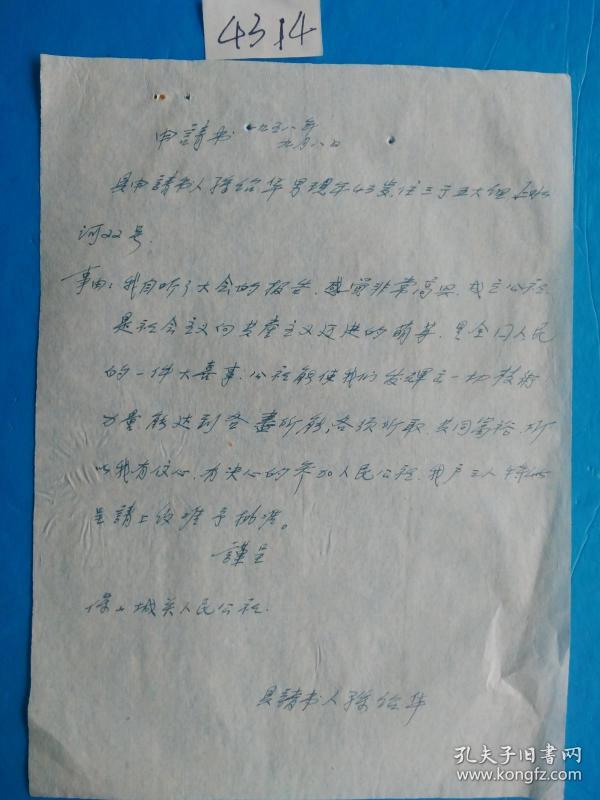 4314
申請书 一九五八年
九月八日
具申請书人孫纶华男現年43岁住三于五大组上水
河22号.
事由:我自听了大会的报告.感覚非常高兴.成立公社
是社会主义向共產主义迈进的萌芽.是全国人民
的一件大喜事.公社能使我们发揮了一切技術
力量能达到各盡所能,各须所取.共同富裕.所
以我有信心.有决心的参加人民公社.我户三人特此
呈請上级准予批准。
謹呈
保山城关人民公社.
具請书人孫纶华
孔夫子旧书网
www.kongfz.com